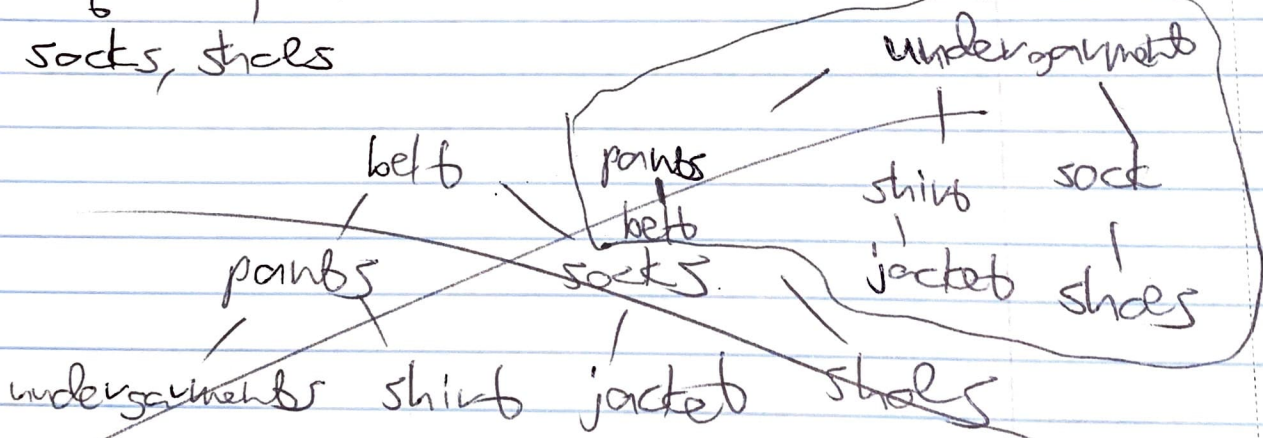 socks, shoes
undergarment
belt pants shirt sock
belt
pants socks jacket shoes
undergarments shirt jacket shoes